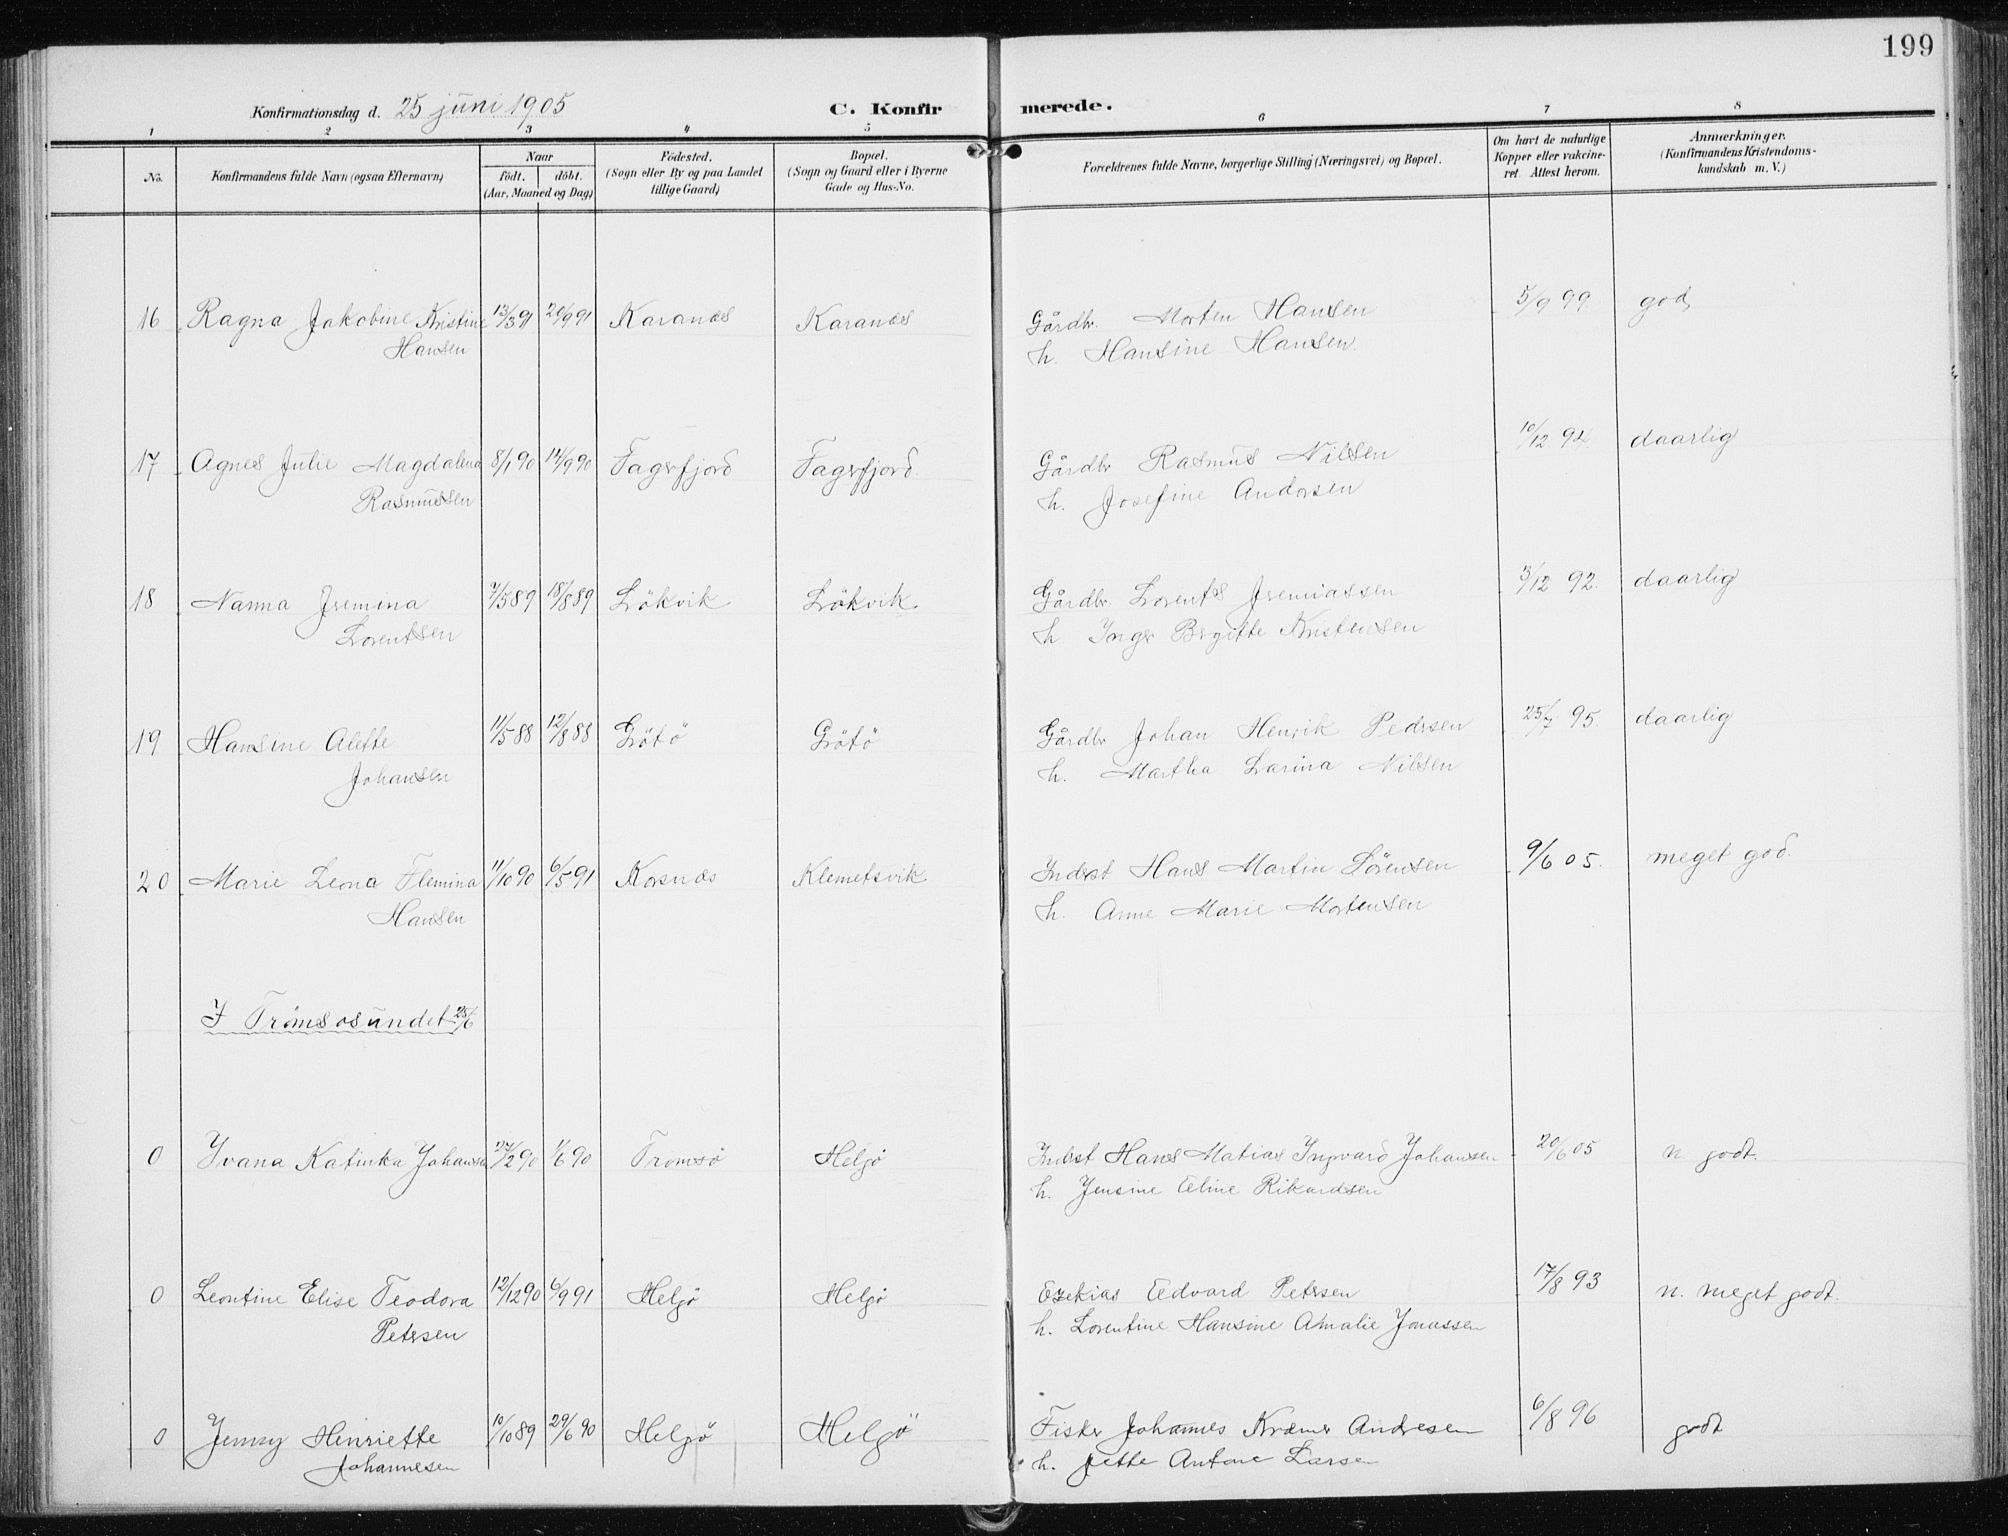 199
Konfirmationsdag d. 25 juni 1905 C. Konfirmerede.
1 2 3 4 5 6 7 8
No. Konfirmandens fulde Navn (ogsaa Efternavn) Naar födt. döbt. (Aar, Maaned og Dag) Födested. (Sogn eller By og paa Landet tillige Gaard) Bopæl. (Sogn og Gaard eller i Byerne Gade og Hus-No. Forældrenes fulde Navne, borgerlige Stilling (Næringsvei) og Bopæl. Om havt de naturlige Kopper eller vakcineret. Attest herom. Anmærkninger. (Konfirmandens Kristendomskundskab m. V.)
16 Ragna Jakobine Kristine 13/3 91 20/9 91 Karanæs Karanæs Gårdbr. Morten Hansen 5/9 99 god
Hansen h. Hansine Hansen.
17 Agnes Julie Magdalena 8/1 90 14/9 90 Fagerfjord Fagerfjord. Gårdbr Rasmus Nilsen 10/12 94 daarlig
Rasmussen h. Josefine Andersen
18 Nanna Jremina 7/5 89 18/8 89 Lökvik Lökvik Gårdbr. Lorents Jremiassen 3/12 92. daarlig
Lorentsen h Inger Brgitte Kristensen
19 Hansine Alette 11/5 88 12/8 88 Grötö Grötö Gårdbr Johan Henrik Pedersen 25/7 95. daarlig
Johansen h. Martha Larina Nilsen
20 Marie Leona Flemina 11/10 90 6/5 91 Korsnæs Klemetsvik Inderst Hans Martin Sörensen 9/6 05. meget god.
Hansen h. Anne Marie Mortensen
I Trömsosundet 25/6
0 Ivana Katinka Johansen 27/2 90 1/6 90 Tromsö Helgö Inderst Hans Matias Ingvard Johansen 20/6 05 n. godt.
h. Jensine Eline Rikardsen
0 Leontine Elise Teodora 12/12 90 6/9 91 Helgö Helgö Ezekias Edvard Petersen 17/8 93 n. meget godt.
Petersen h. Lorentine Hansine Amalie Jonassen
0 Jenny Henriette 10/10 89 29/6 90 Helgö Helgö Fisker Johannes Kræmer Andresen 6/8 96 godt
Johannesen h. Jette Antone Larsen